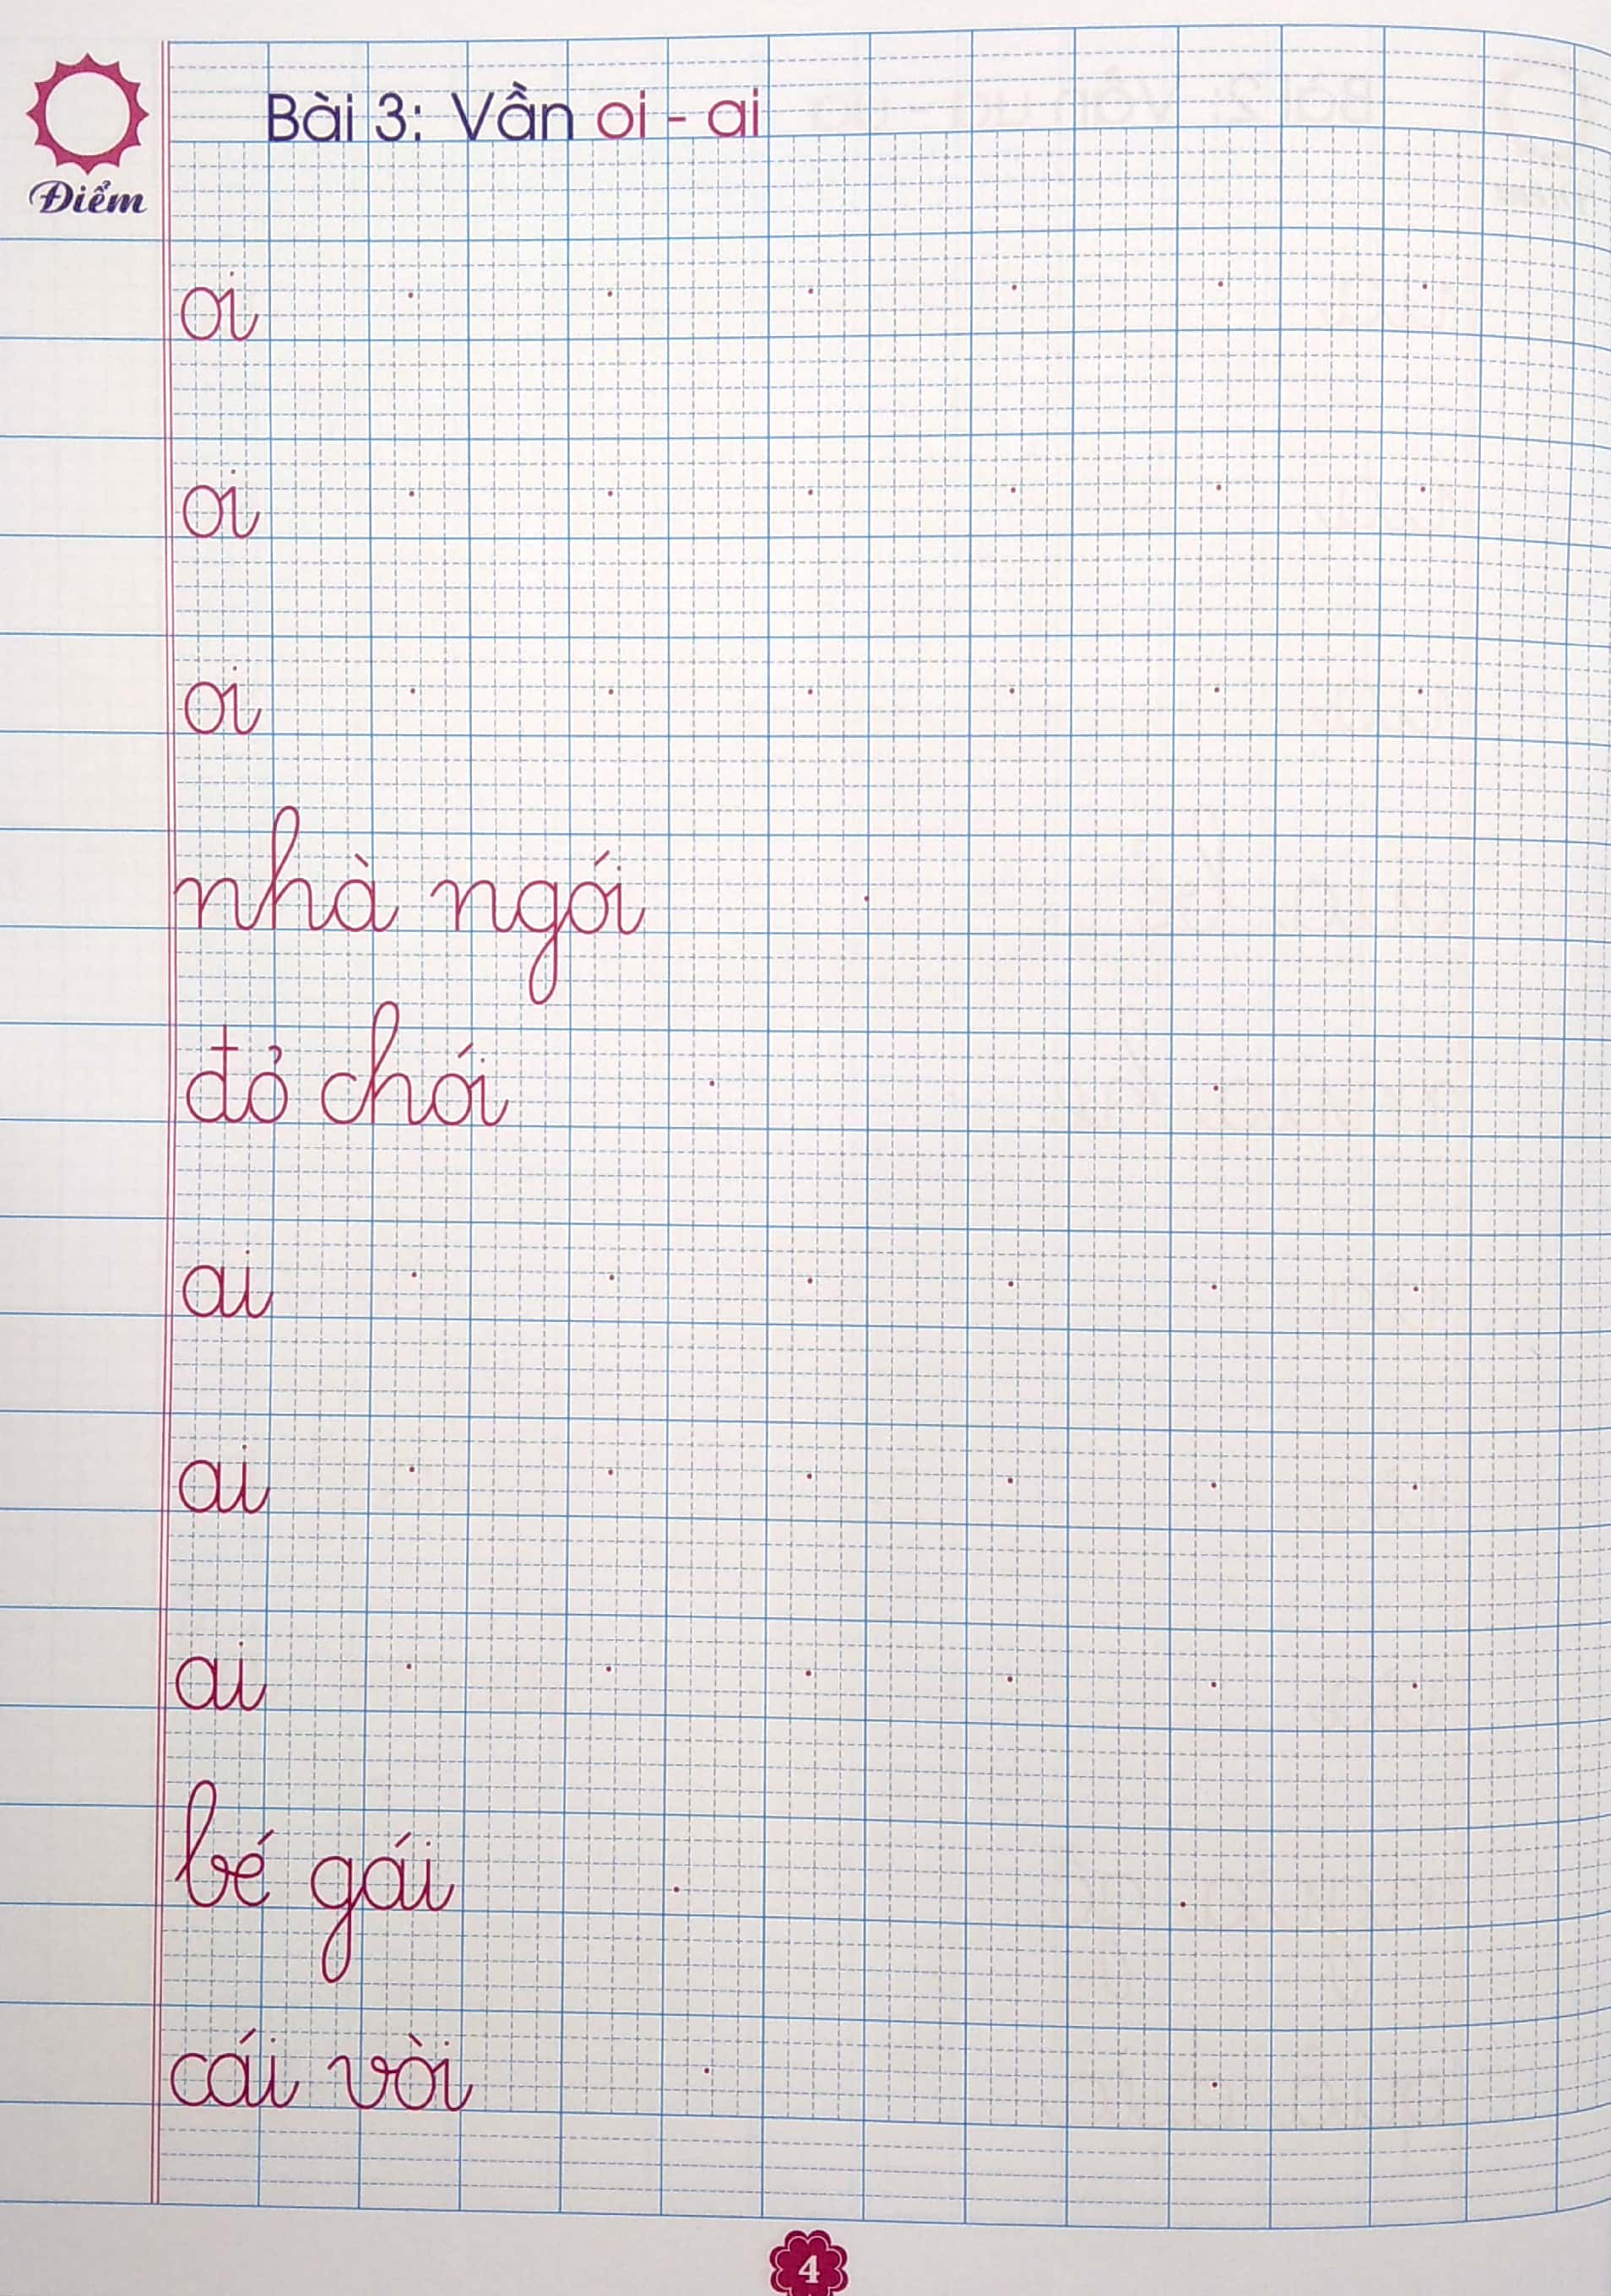 Bài 3: Vần oi - ai
Điểm
oi
oi
oi
nhà ngói
đỏ chói
ai
ai
ai
bé gái
cái vòi
4